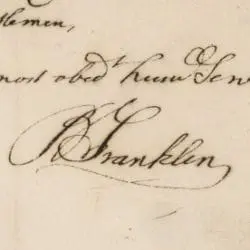 tlemen,
most obed.t hum Serv
B Franklin